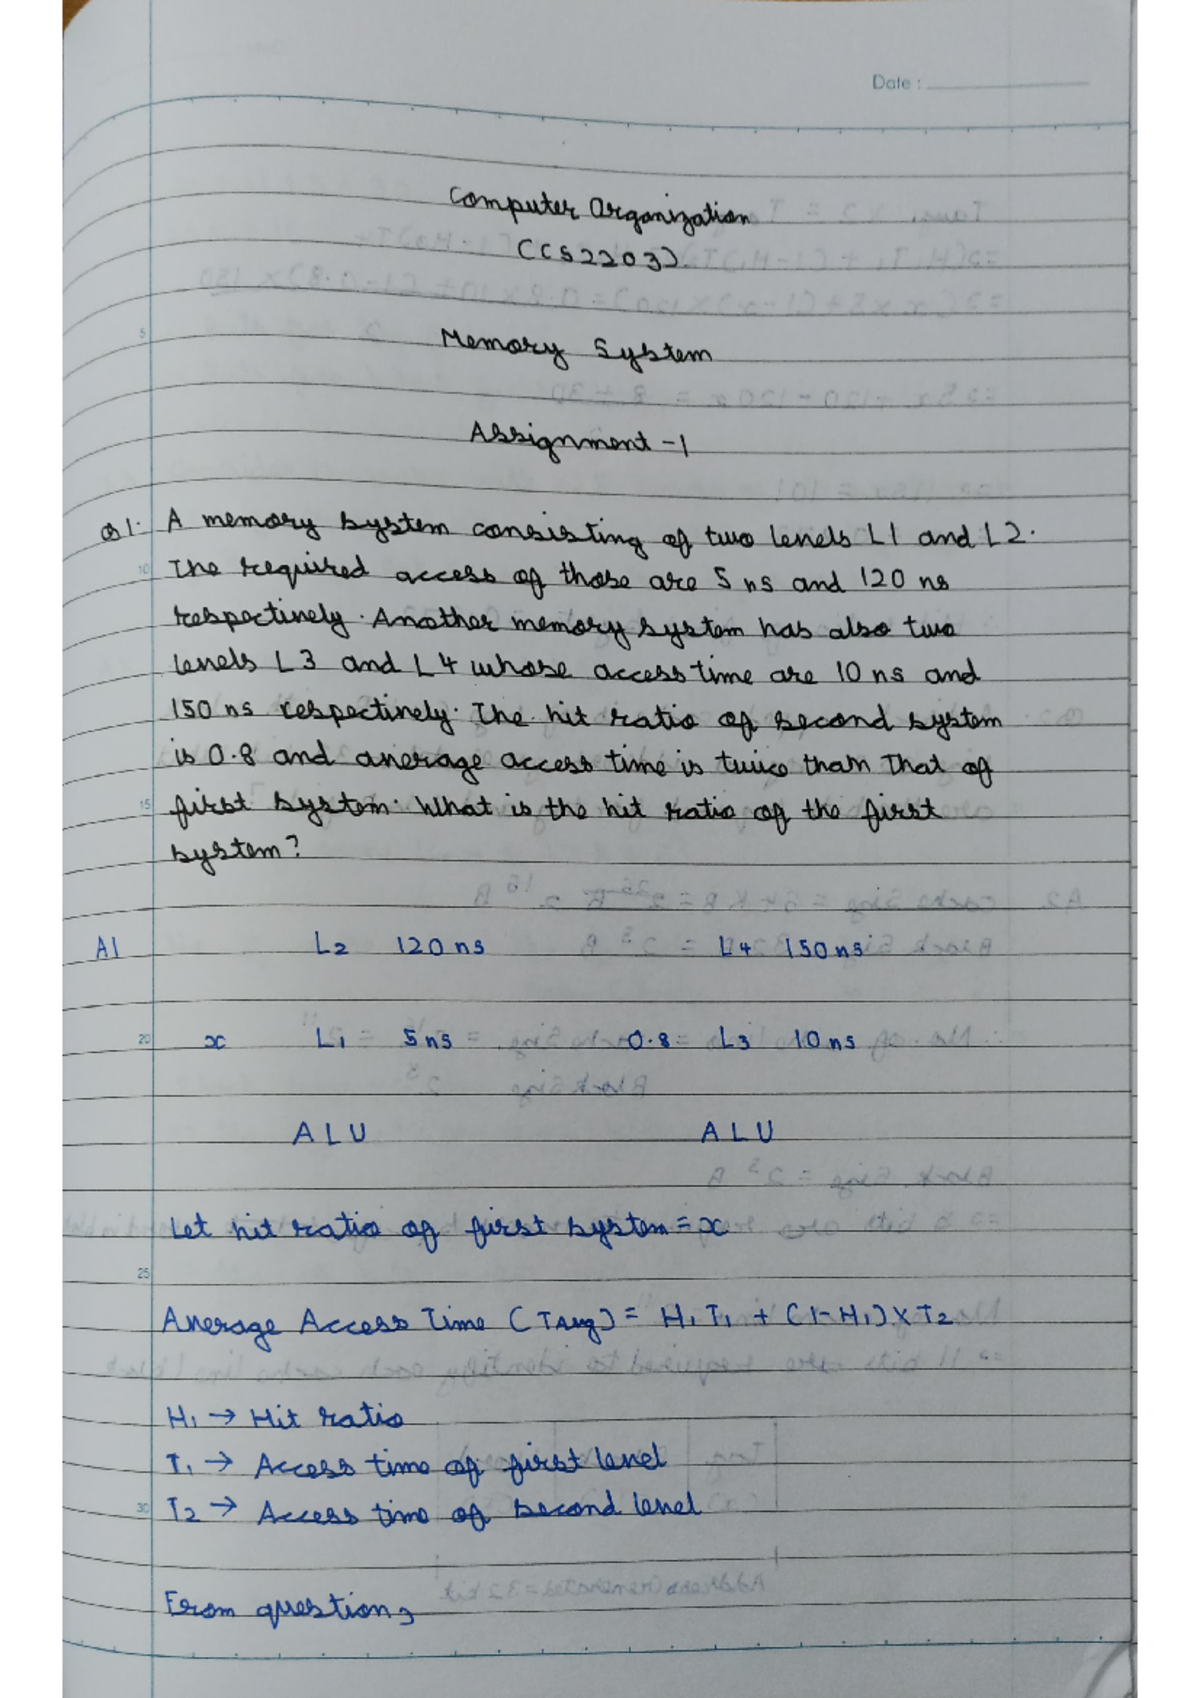 Date :
Computer Organization
(CS2203)
5
Memory System
Assignment -1
Q1. A memory system consisting of two levels L1 and L2.
10 The required access of those are 5 ns and 120 ns
respectively. Another memory system has also two
levels L3 and L4 whose access time are 10 ns and
150 ns respectively. The hit ratio of second system
is 0.8 and average access time is twice than that of
15 first system. What is the hit ratio of the first
system?
A1 L2 120 ns L4 150 ns
20 x L1 5 ns 0.8 L3 10 ns
ALU ALU
Let hit ratio of first system = x
25
Average Access Time (TAvg) = H1 T1 + (1-H1) X T2
H1 → Hit ratio
T1 → Access time of first level
30 T2 → Access time of second level
From question,